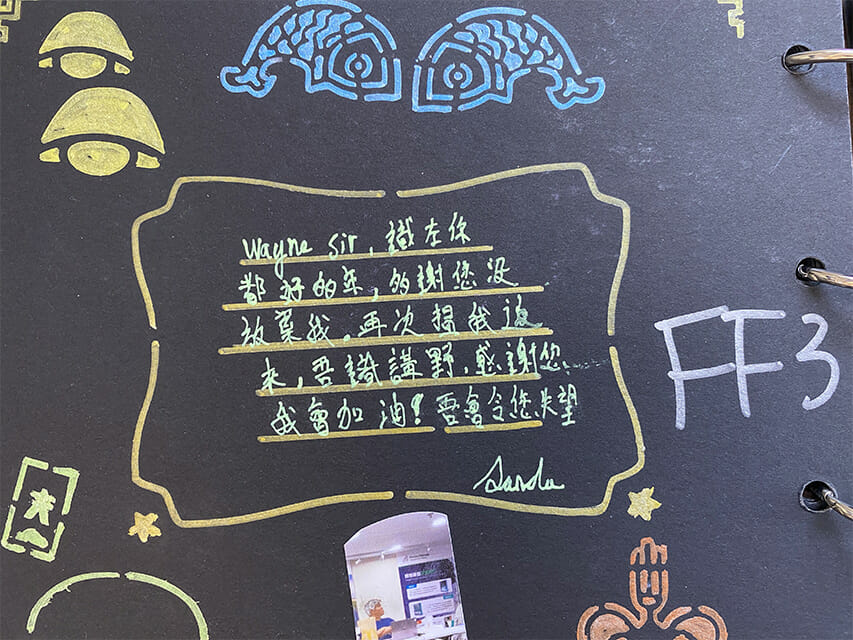 Wayne Sir, 識左你
都好的年, 的謝您沒
放棄我. 再次揾我返
來, 吾識講野, 感謝您
我會加油! 吾會令您失望
Sandu
FF3
大